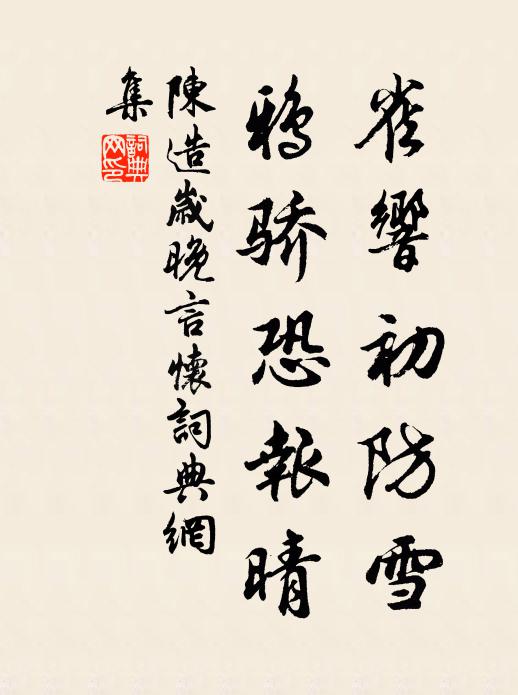 雀響初防雪
鴉骄恐報晴
陳造歳晚言懷詞典網
集
詞典
网印